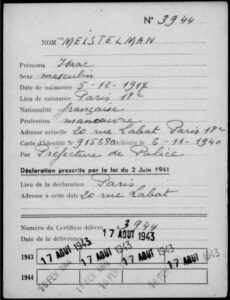 N° 3944
NOM MEISTELMAN
Prénoms Isaac
Sexe masculin
Date de naissance 5-12-1917
Lieu de naissance Paris 18e
Nationalité française
Profession manœuvre
Adresse actuelle 20 rue Labat Paris 18e
Carte d'Identité N° délivrée le 6-11-1940
Par Préfecture de Police
Déclaration prescrite par la loi du 2 Juin 1941
Lieu de la déclaration Paris
Adresse à cette date 20 rue Labat
Numéro du Certificat délivré 3944
Date de la délivrance 17 AOUT 1943
1943 17 AOUT 1943 17 AOUT 1943
1944